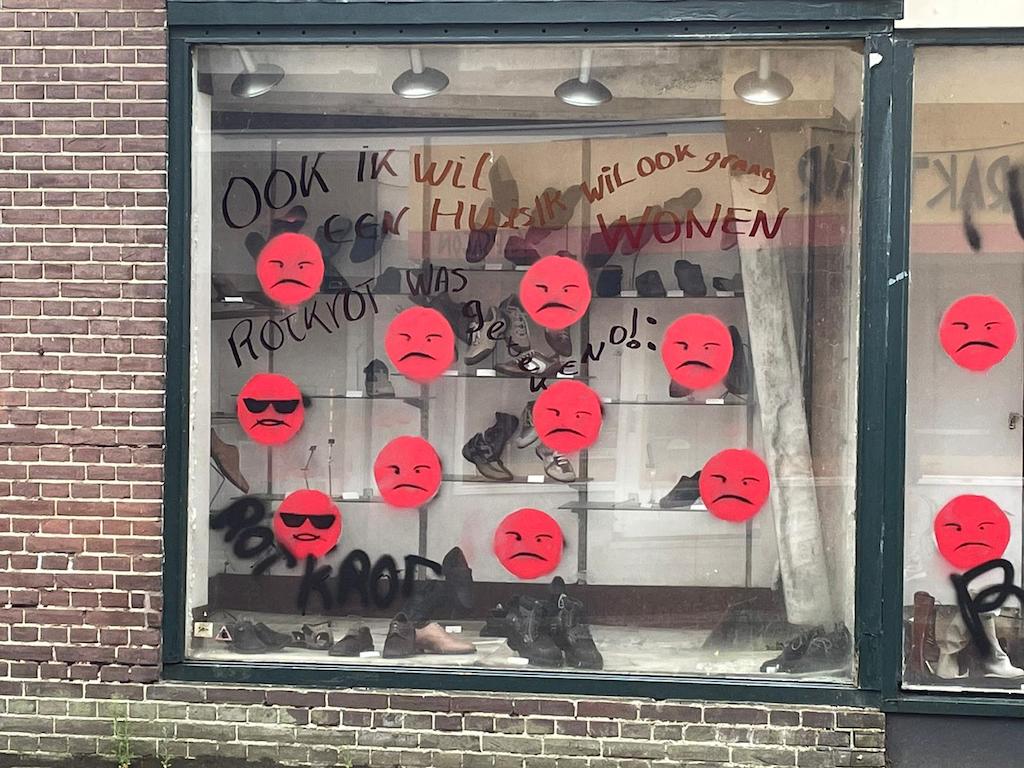 OOK IK WIL
EEN HUIS IK WIL OOK graag
WONEN
ROTKROT WAS
getekEND!:
ROT
KROT